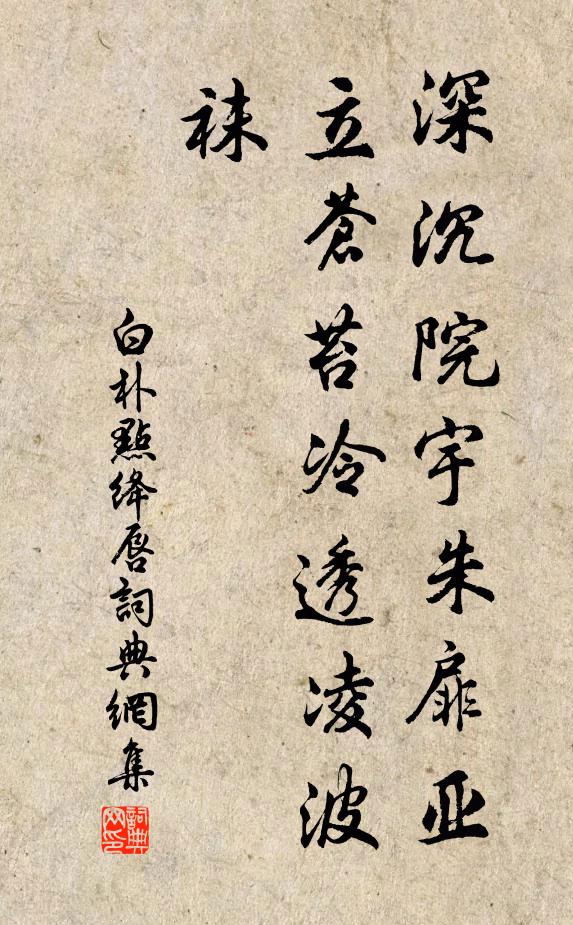 深沉院宇朱扉亚
立蒼苔冷透凌波
袜
白朴點绛唇詞典網集
詞典网印